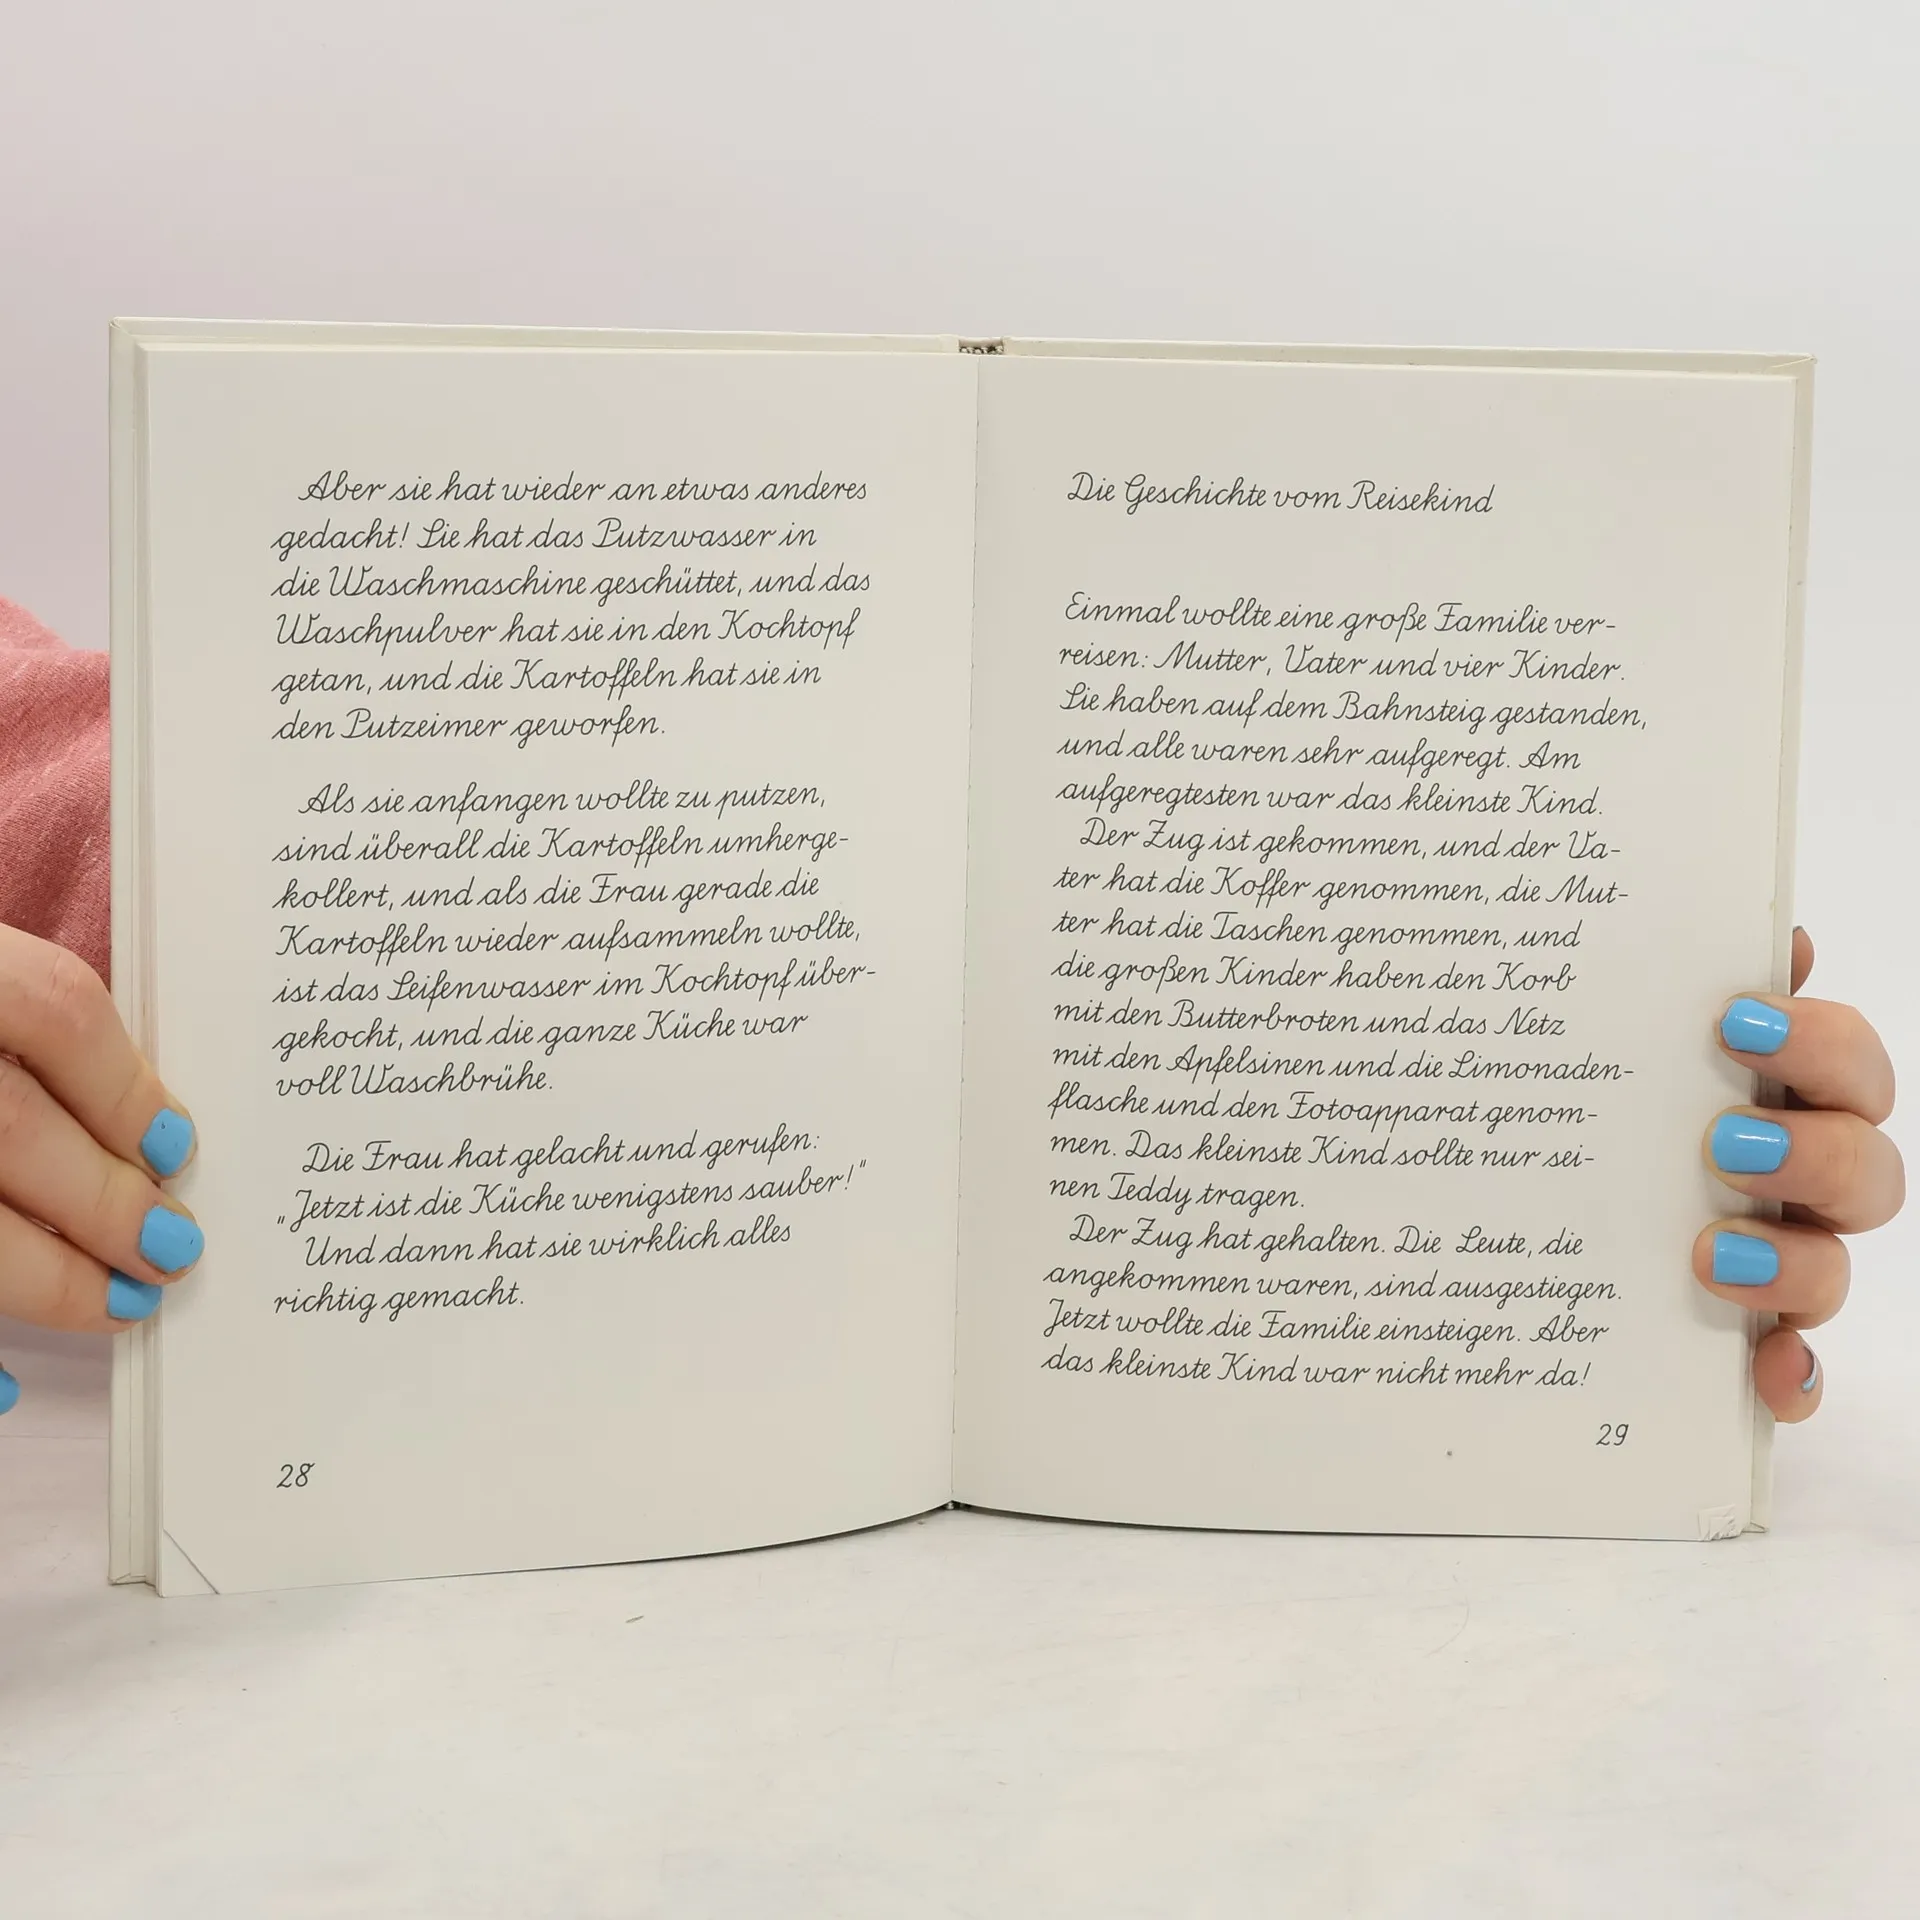 Aber sie hat wieder an etwas anderes
gedacht! Sie hat das Putzwasser in
die Waschmaschine geschüttet, und das
Waschpulver hat sie in den Kochtopf
getan, und die Kartoffeln hat sie in
den Putzeimer geworfen.
Als sie anfangen wollte zu putzen,
sind überall die Kartoffeln umherge-
kollert, und als die Frau gerade die
Kartoffeln wieder aufsammeln wollte,
ist das Seifenwasser im Kochtopf über-
gekocht, und die ganze Küche war
voll Waschbrühe.
Die Frau hat gelacht und gerufen:
„Jetzt ist die Küche wenigstens sauber!"
Und dann hat sie wirklich alles
richtig gemacht.
28
Die Geschichte vom Reisekind
Einmal wollte eine große Familie ver-
reisen: Mutter, Vater und vier Kinder.
Sie haben auf dem Bahnsteig gestanden,
und alle waren sehr aufgeregt. Am
aufgeregtesten war das kleinste Kind.
Der Zug ist gekommen, und der Va-
ter hat die Koffer genommen, die Mut-
ter hat die Taschen genommen, und
die großen Kinder haben den Korb
mit den Butterbroten und das Netz
mit den Apfelsinen und die Limonaden-
flasche und den Fotoapparat genom-
men. Das kleinste Kind sollte nur sei-
nen Teddy tragen.
Der Zug hat gehalten. Die Leute, die
angekommen waren, sind ausgestiegen.
Jetzt wollte die Familie einsteigen. Aber
das kleinste Kind war nicht mehr da!
29